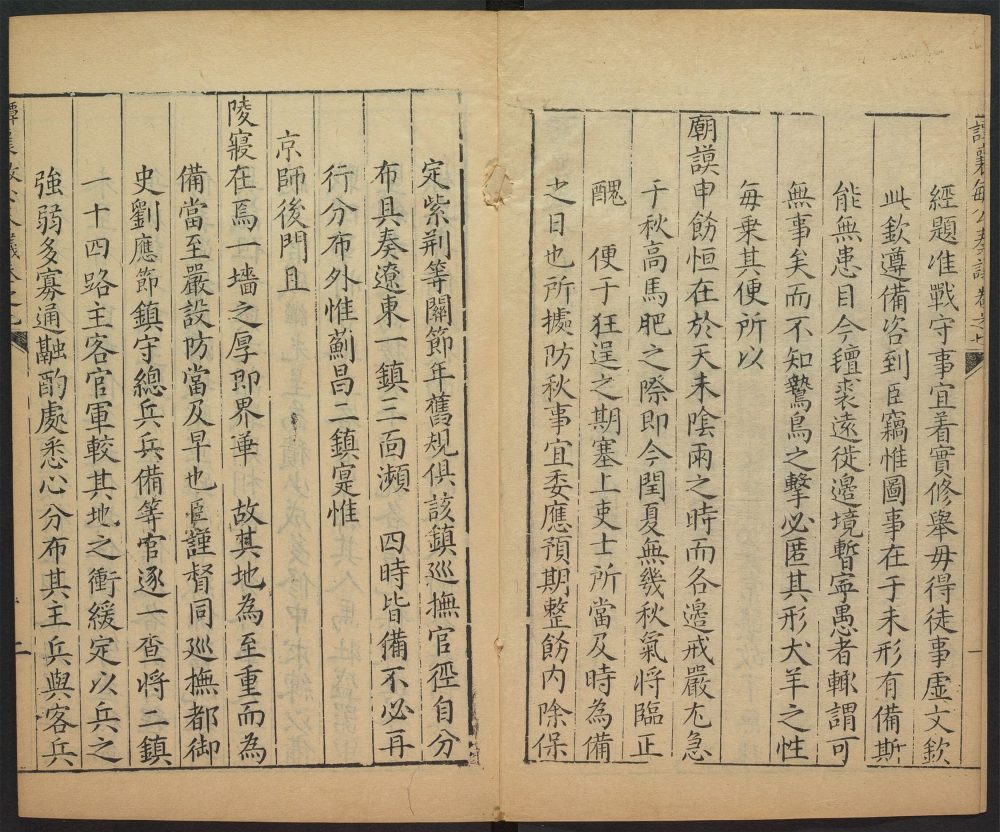 譚襄敏公奏議卷之七
經題准戰守事宜着實修舉毋得徒事虛文欽
此欽遵備咨到臣竊惟圖事在于未形有備斯
能無患目今氊裘遠徙邊境暫寧愚者輙謂可
無事矣而不知鷙鳥之擊必匿其形犬羊之性
每乗其便所以
廟謨申飭恒在於天未陰雨之時而各邊戒嚴尢急
于秋高馬肥之際即今閏夏無幾秋氣将臨正
醜 便于狂逞之期塞上吏士所當及時為備
之日也所據防秋事宜委應預期整飭内除保
一
定紫荆等關節年舊規俱該鎮巡撫官徑自分
布具奏遼東一鎮三面瀕 四時皆備不必再
行分布外惟薊昌二鎮寔惟
京師後門且
陵寢在焉一墻之厚即界華 故其地為至重而為
備當至嚴設防當及早也臣謹督同巡撫都御
史劉應節鎮守總兵兵備等官逐一查將二鎮
一十四路主客官軍較其地之衝緩定以兵之
強弱多寡通融酌處悉心分布其主兵與客兵
二